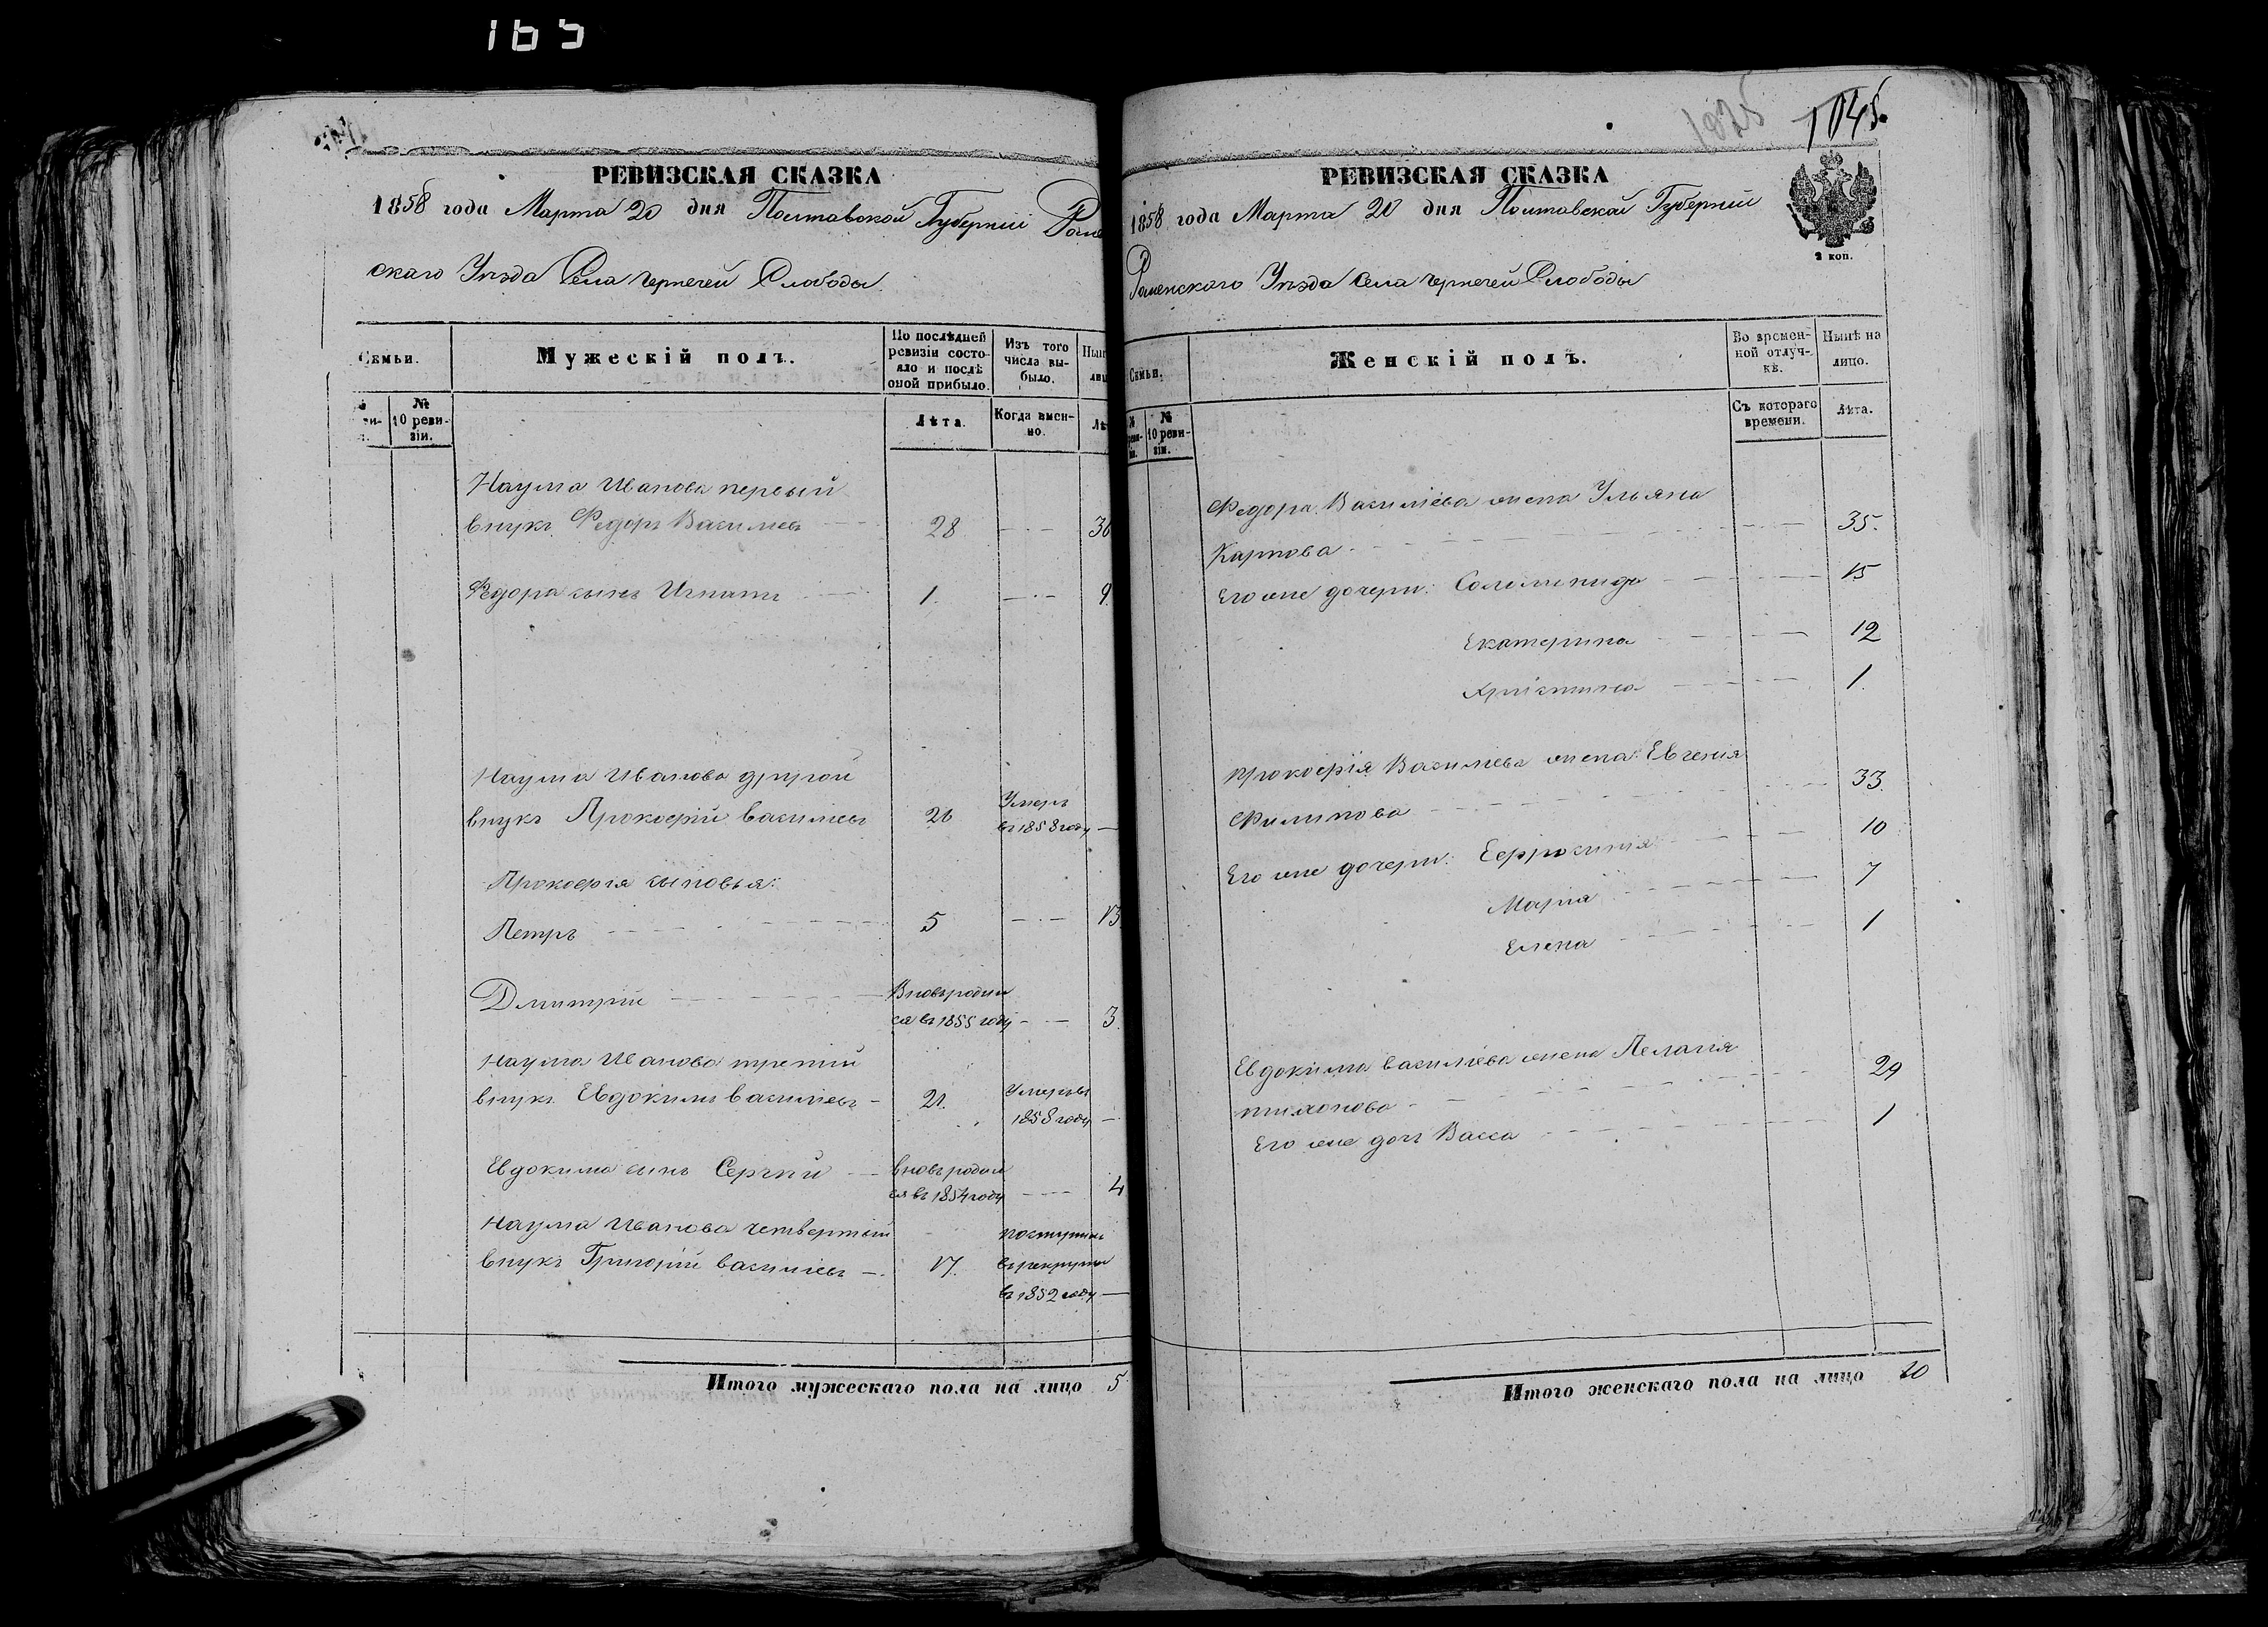 165
РЕВИЗСКАЯ СКАЗКА
1858 года Марта 20 дня Полтавской Губернiи Роме
скаго Уѣзда Села Чернечей Слободы
Семьи.
Мужескiй полъ.
По послѣдней ревизiи состояло и послѣ оной прибыло.
Изъ того числа выбыло.
№ 10 ревизiи.
Лѣта.
Когда именно.
Наума Иванова первый
внукъ Федоръ Васильевъ 28 36
Федора сынъ Игнатъ 1. 9.
Наума Иванова другой
внукъ Прокофiй Васильевъ 26 Умеръ въ 1858 году
Прокофiя сыновья:
Петръ 5 13
Дмитрiй Вновь родился въ 1855 году 3.
Наума Иванова третiй
внукъ Евдокимъ Васильевъ 21. Умеръ въ 1858 году
Евдокима сынъ Сергiй вновь родился въ 1854 году 4
Наума Иванова четвертый
внукъ Григорiй Васильевъ 17. поступилъ въ рекруты въ 1852 году
Итого мужескаго пола на лицо 5
1025
1045.
РЕВИЗСКАЯ СКАЗКА
1858 года Марта 20 дня Полтавской Губернiи
2 коп.
Роменскаго Уѣзда Села Чернечей Слободы
Семьи.
Женскiй полъ.
Во временной отлучкѣ.
Нынѣ на лицо.
№ 10 ревизiи.
Съ котораго времени.
Лѣта.
Федора Васильева жена Ульяна
Карпова 35.
Его же дочери: Соломонида 15
Екатерина 12
Христина 1.
Прокофiя Васильева жена Евгенiя
Филипова 33.
Его же дочери: Ефросинiя 10
Марiя 7
Елена 1
Евдокима Васильева жена Пелагiя
Тимофова 29
Его же дочь Васса 1
Итого женскаго пола на лицо 10